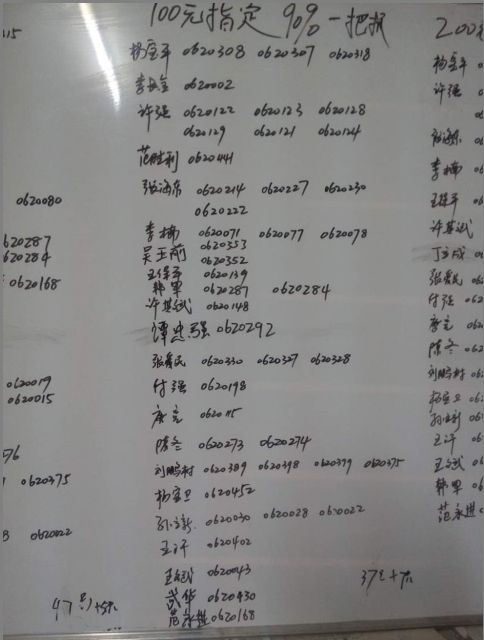 100元指定 90%一把抓
200元
杨宝平 0620308 0620307 0620318
李长金 0620002
许强 0620122 0620123 0620128
0620129 0620121 0620124
范胜利 0620441
张海东 0620214 0620227 0620230
0620222
李楠 0620071 0620077 0620078
吴玉前 0620353
0620352
王保平 0620139
韩军 0620287 0620284
许其斌 0620148
谭忠强 0620292
张爱民 0620330 0620327 0620328
付强 0620198
康克 0620115
陈冬 0620273 0620274
刘鹏村 0620389 0620398 0620379 0620375
杨宝卫 0620452
0620030 0620028 0620022
王许 0620402
0620043
武华 0620430
范永进 0620168
37号+
0620080
620287
620284
0620168
0620019
0620015
0620375
0620022
47号+
杨宝平
许强
李楠
王保平
许其斌
张爱民
付强
康克
陈冬
刘鹏村
杨宝卫
王许
韩军
范永进